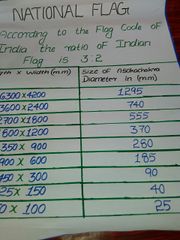 NATIONAL FLAG
According to the Flag Code of
India the ratio of Indian
Flag is 3:2
Width (mm) Size of Ashokachakra
Diameter in (mm)
6300 x 4200 1295
3600 x 2400 740
2700 x 1800 555
1800 x 1200 370
350 x 900 280
900 x 600 185
450 x 300 90
25 x 150 40
0 x 100 25